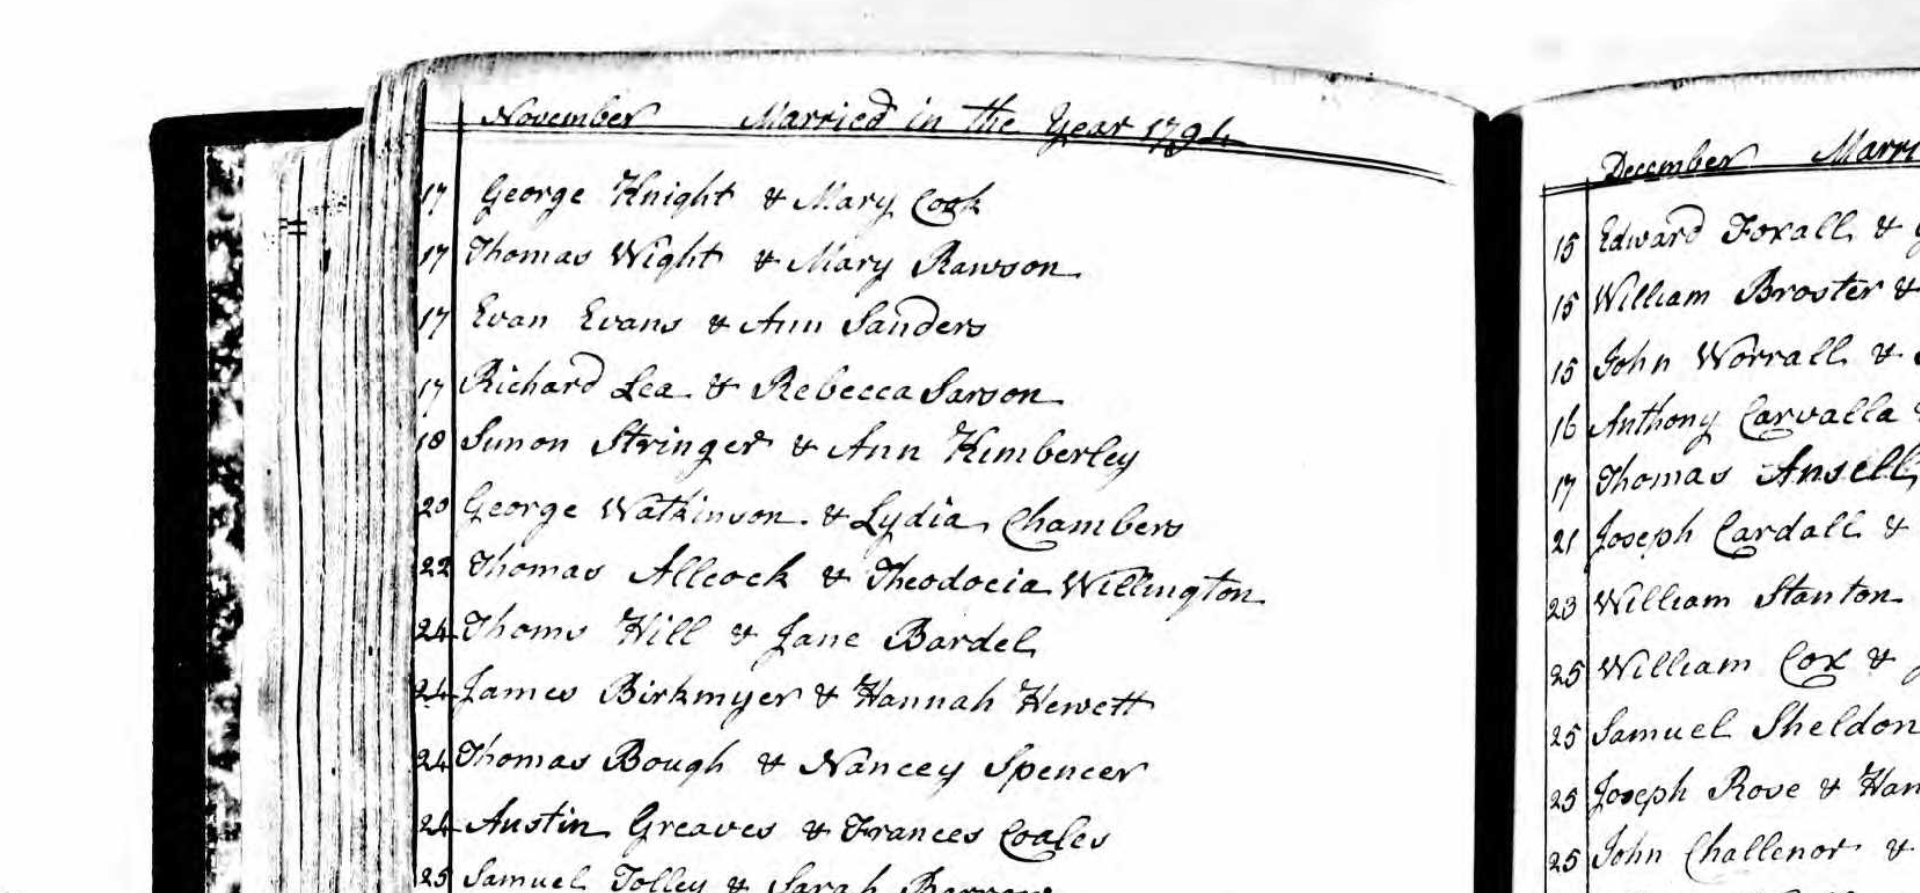 November Married in the Year 1794
17 George Knight & Mary Cook
17 Thomas Wight & Mary Rawson
17 Evan Evans & Ann Sanders
17 Richard Lea & Rebecca Sarson
18 Simon Stringer & Ann Kimberley
20 George Watkinson & Lydia Chambers
22 Thomas Allcock & Theodocia Willington
24 Thoms Hill & Jane Bardel
24 James Birkmyer & Hannah Hewett
24 Thomas Bough & Nancey Spencer
24 Austin Greaves & Frances Coales
25 Samuel Tolley & Sarah Barrow
December Marri
15 Edward Foxall &
15 William Broster &
15 John Worrall &
16 Anthony Carvalla
17 Thomas Ansell
21 Joseph Cardall &
23 William Stanton
25 William Cox &
25 Samuel Sheldon
25 Joseph Rose & Han
25 John Challenor &